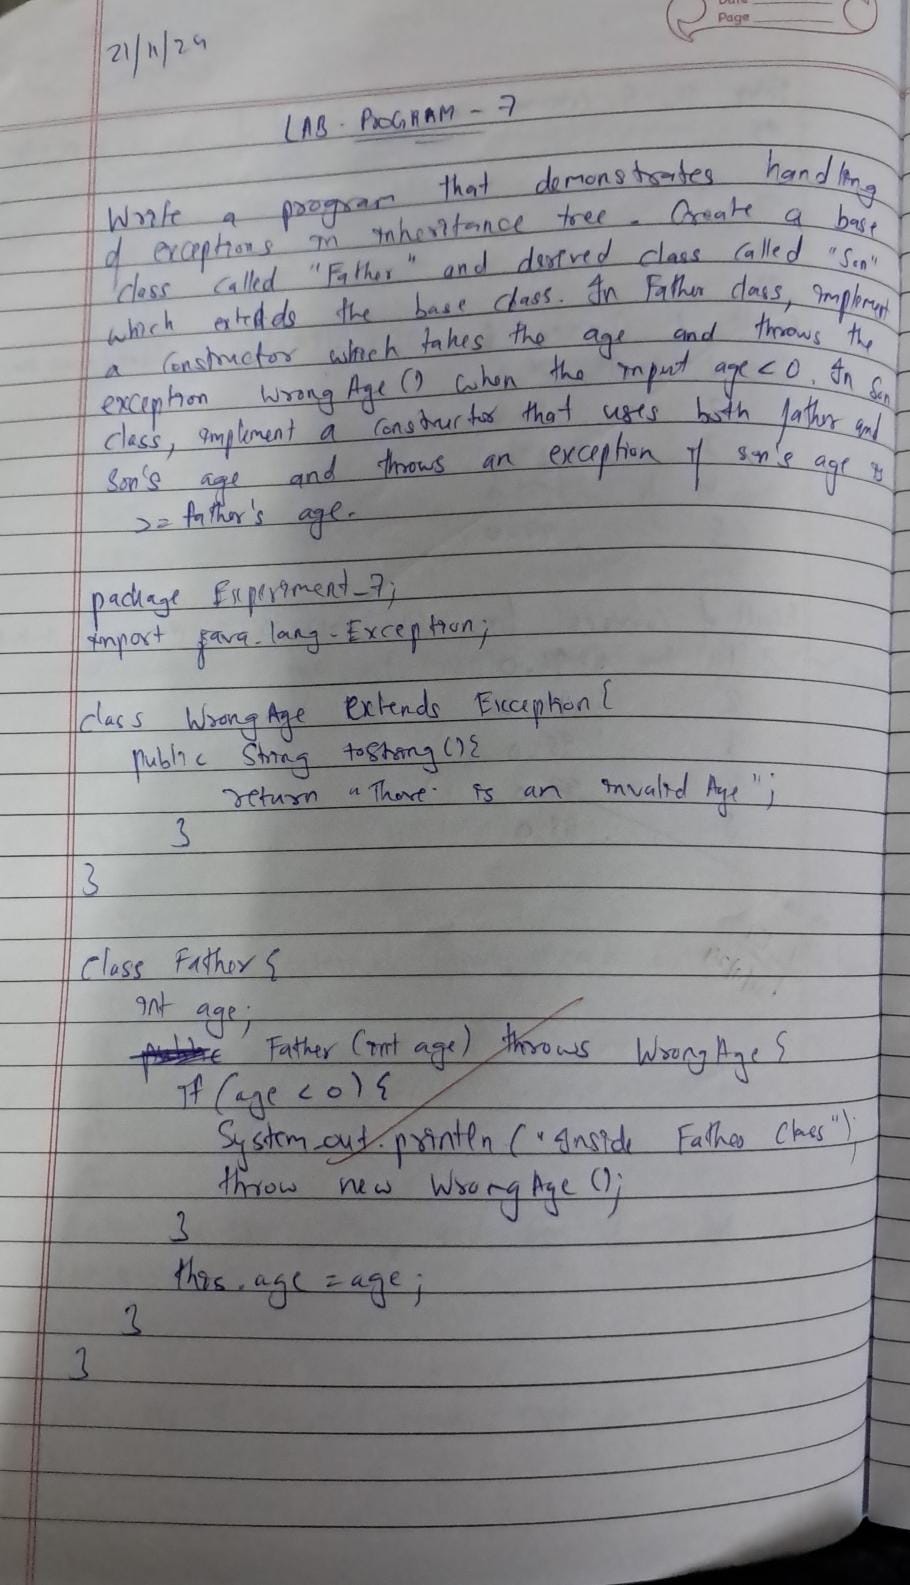 Date
Page
21/11/24
LAB. PROGRAM - 7
Write a program that demonstrates handling
of exceptions in inheritance tree. Create a base
class called "Father" and derived class called "Son"
which extends the base class. In Father class, implement
a constructor which takes the age and throws the
exception WrongAge () when the input age < 0. In Son
class, implement a constructor that uses both father and
Son's age and throws an exception if son's age is
>= father's age.
package Experiment_7;
import java.lang.Exception;
class WrongAge extends Exception {
public String toString () {
return "There is an invalid Age";
}
}
class Father {
int age;
Father (int age) throws WrongAge {
if (age < 0) {
System.out.println ("Inside Father Class");
throw new WrongAge ();
}
this.age = age;
}
}